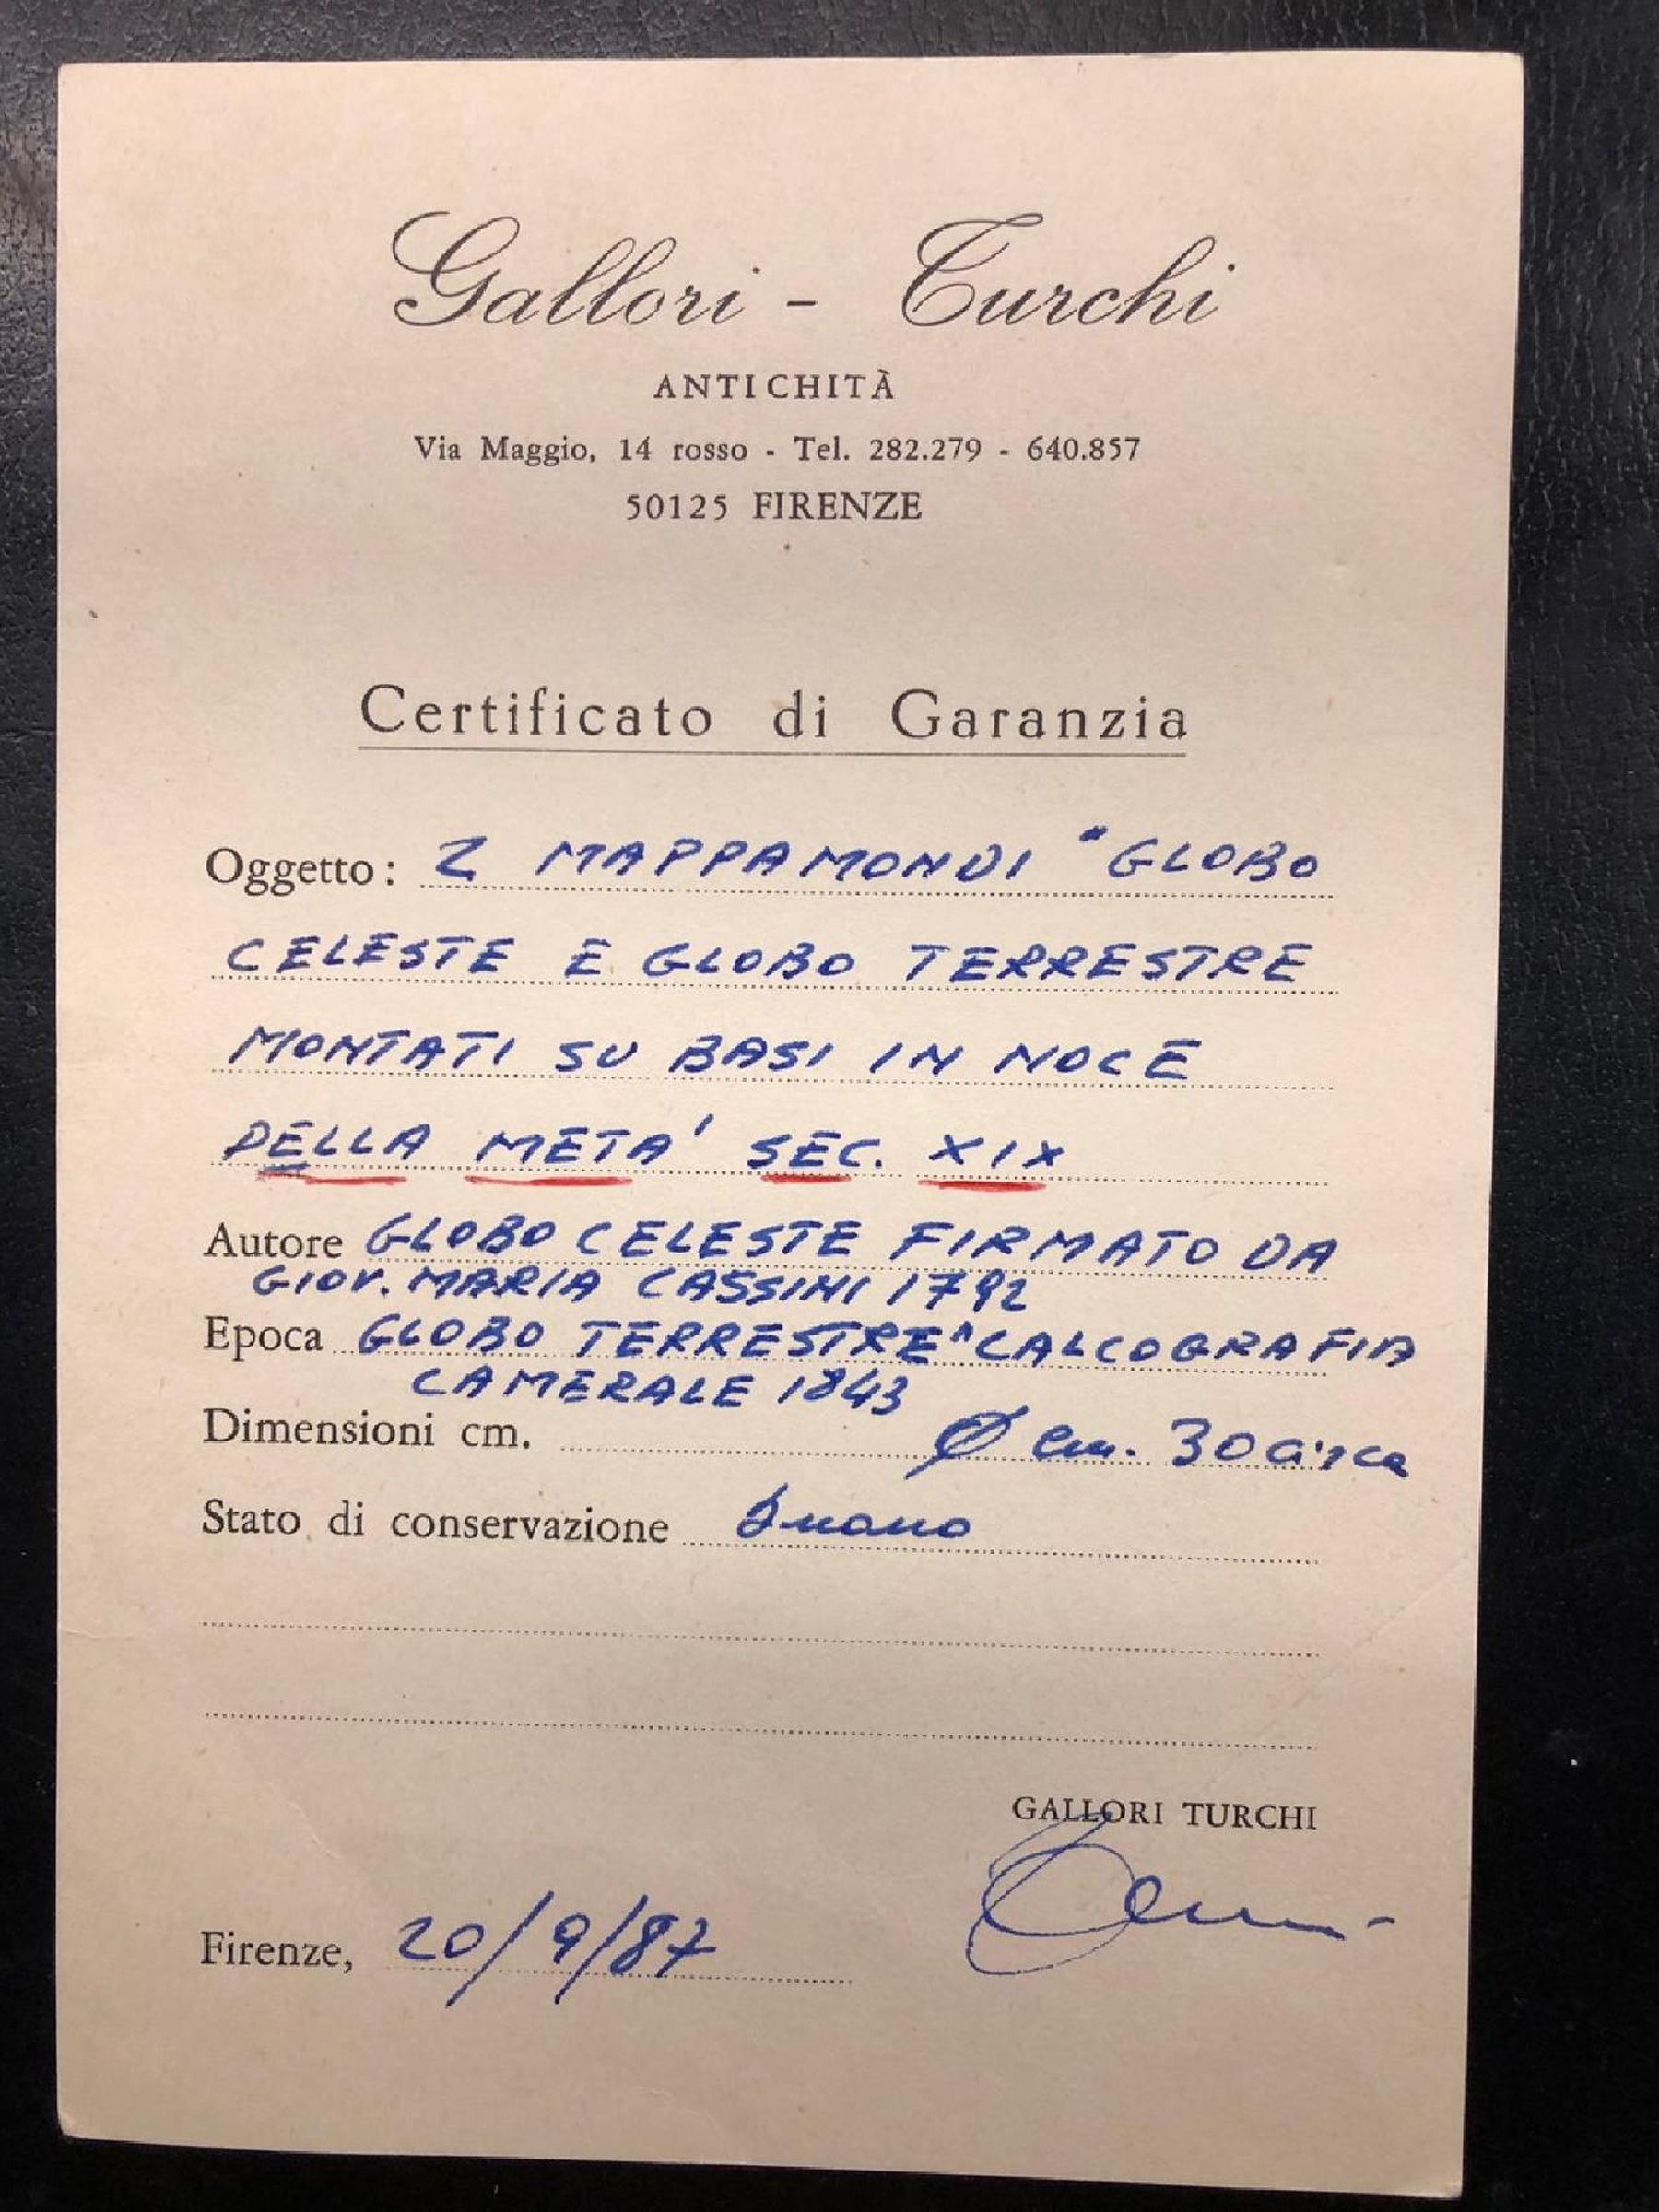 Gallori - Turchi
ANTICHITÀ
Via Maggio, 14 rosso - Tel. 282.279 - 640.857
50125 FIRENZE
Certificato di Garanzia
Oggetto: 2 MAPPAMONDI "GLOBO
CELESTE E GLOBO TERRESTRE
MONTATI SU BASI IN NOCE
DELLA META' SEC. XIX
Autore GLOBO CELESTE FIRMATO DA
GIOV. MARIA CASSINI 1792
Epoca GLOBO TERRESTRE "CALCOGRAFIA
CAMERALE 1843
Dimensioni cm. Ø cm. 30 circa
Stato di conservazione buono
GALLORI TURCHI
Firenze, 20/9/87